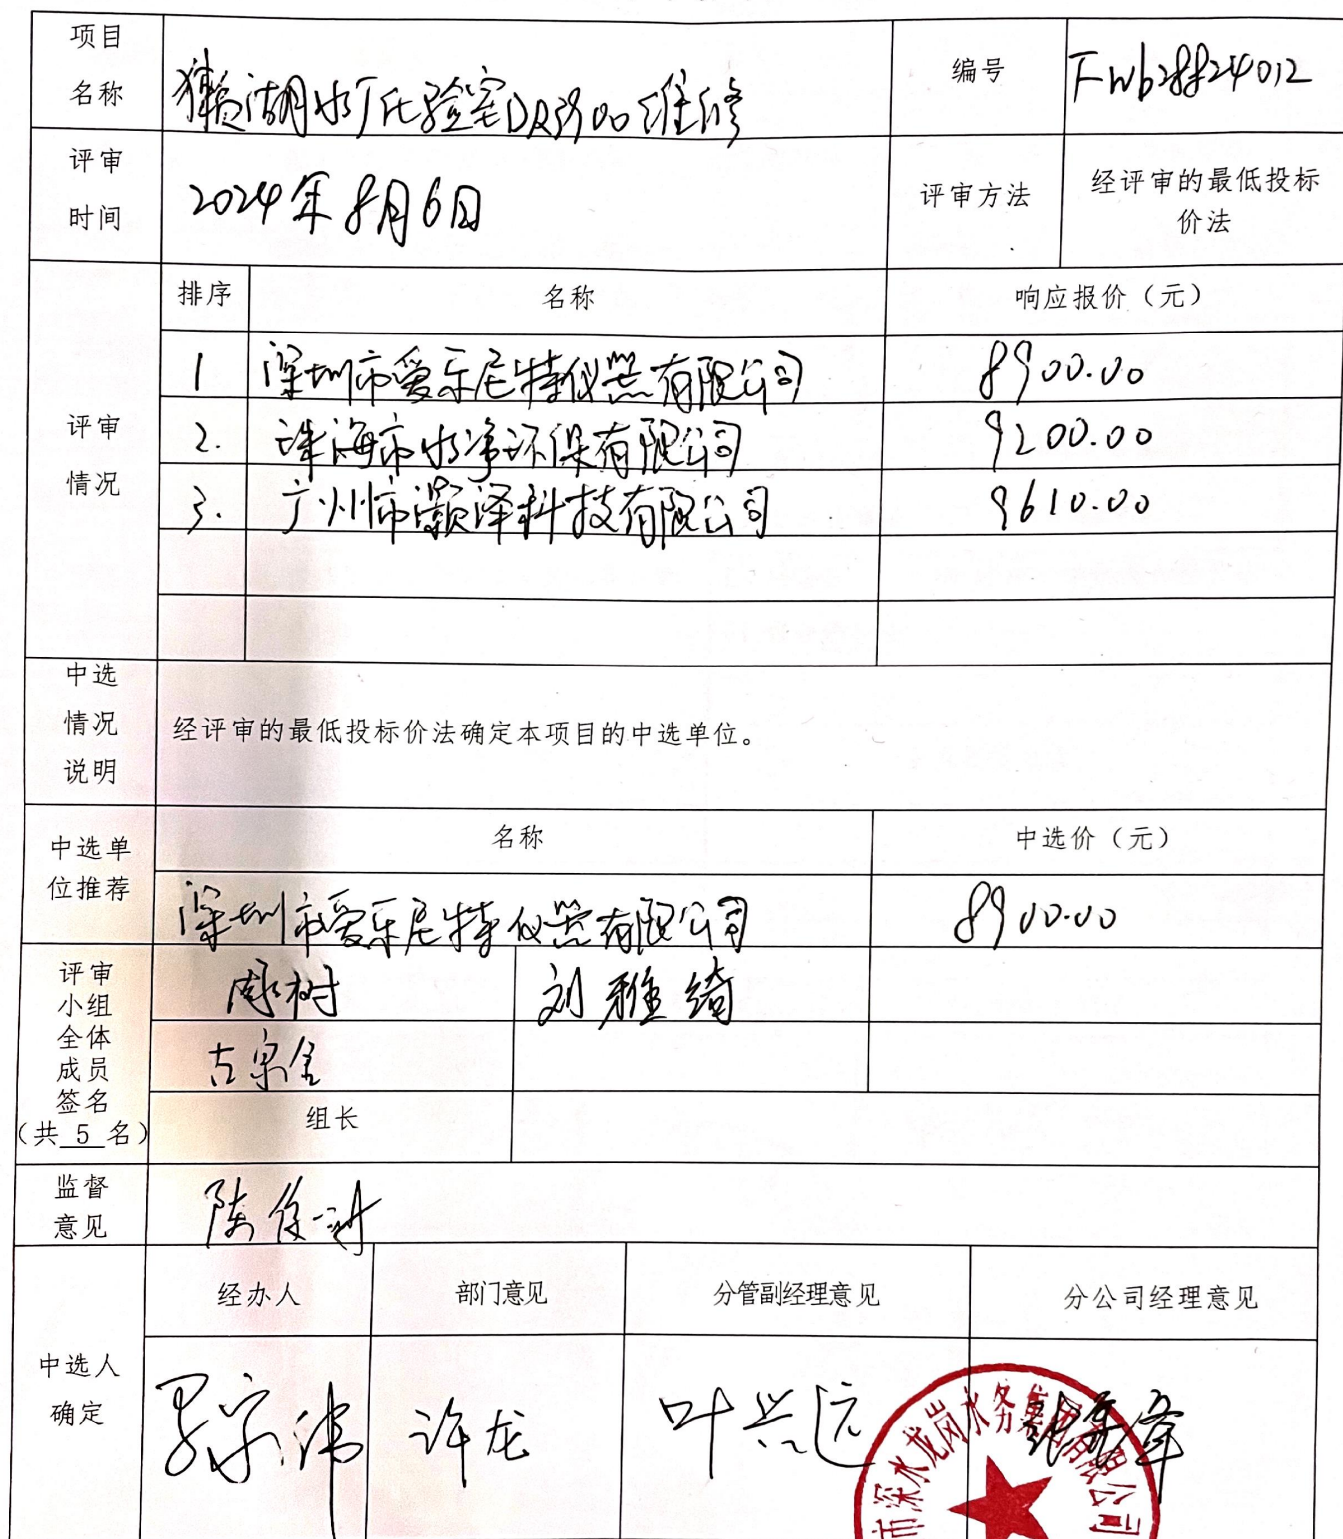 项目
名称
獭湖水厂化验室DR3900维修
编号
评审
时间
2024年8月6日
评审方法
经评审的最低投标
价法
评审
情况
排序
名称
响应报价（元）
1
深圳市爱乐尼特仪器有限公司
8900.00
2.
珠海市水净环保有限公司
9200.00
3.
广州市灏泽科技有限公司
9610.00
中选
情况
说明
经评审的最低投标价法确定本项目的中选单位。
中选单
位推荐
名称
中选价（元）
深圳市爱乐尼特仪器有限公司
8900.00
评审
小组
全体
成员
签名
（共 5 名）
刘雅绮
组长
监督
意见
中选人
确定
经办人
部门意见
分管副经理意见
分公司经理意见
许龙
叶兴远
市深水龙岗水务集团有限公司